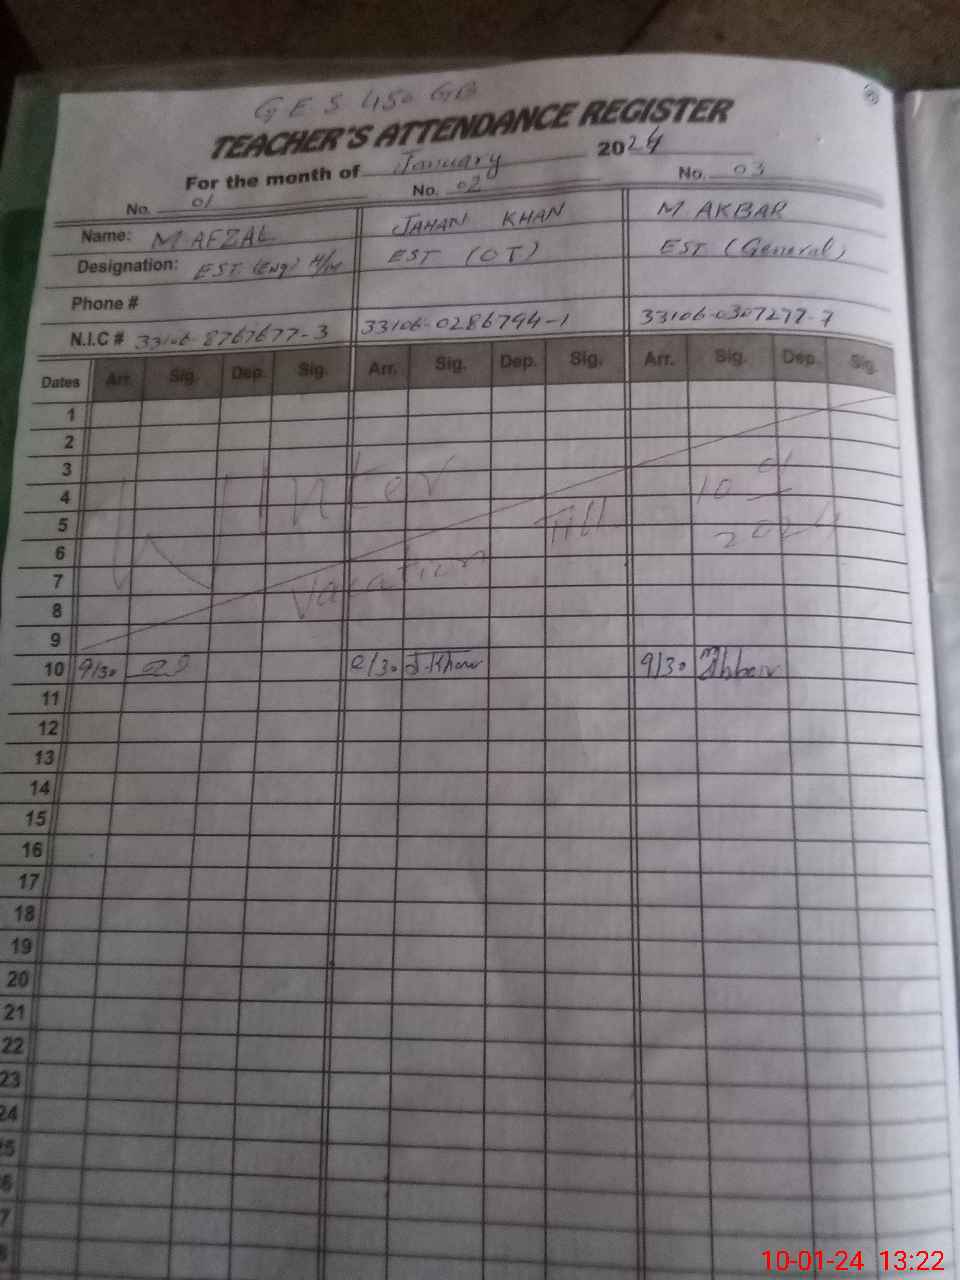 GES 450 GB
TEACHER'S ATTENDANCE REGISTER
For the month of January 2024
No. 01 No. 02 No. 03
Name: M AFZAL JAHAN KHAN M AKBAR
Designation: EST (Eng) H/M EST (OT) EST (General)
Phone #
N.I.C # 33106-8767677-3 33106-0286794-1 33106-0307277-7
Dates Arr. Sig. Dep. Sig. Arr. Sig. Dep. Sig. Arr. Sig. Dep. Sig.
1
2
3
4
5
6
7
8
9
Winter
Vacation Till 10 01
2024
10 9/30 9/30 J.Khan 9/30 M Akbar
11
12
13
14
15
16
17
18
19
20
21
22
23
24
25
6
7
8
10-01-24 13:22